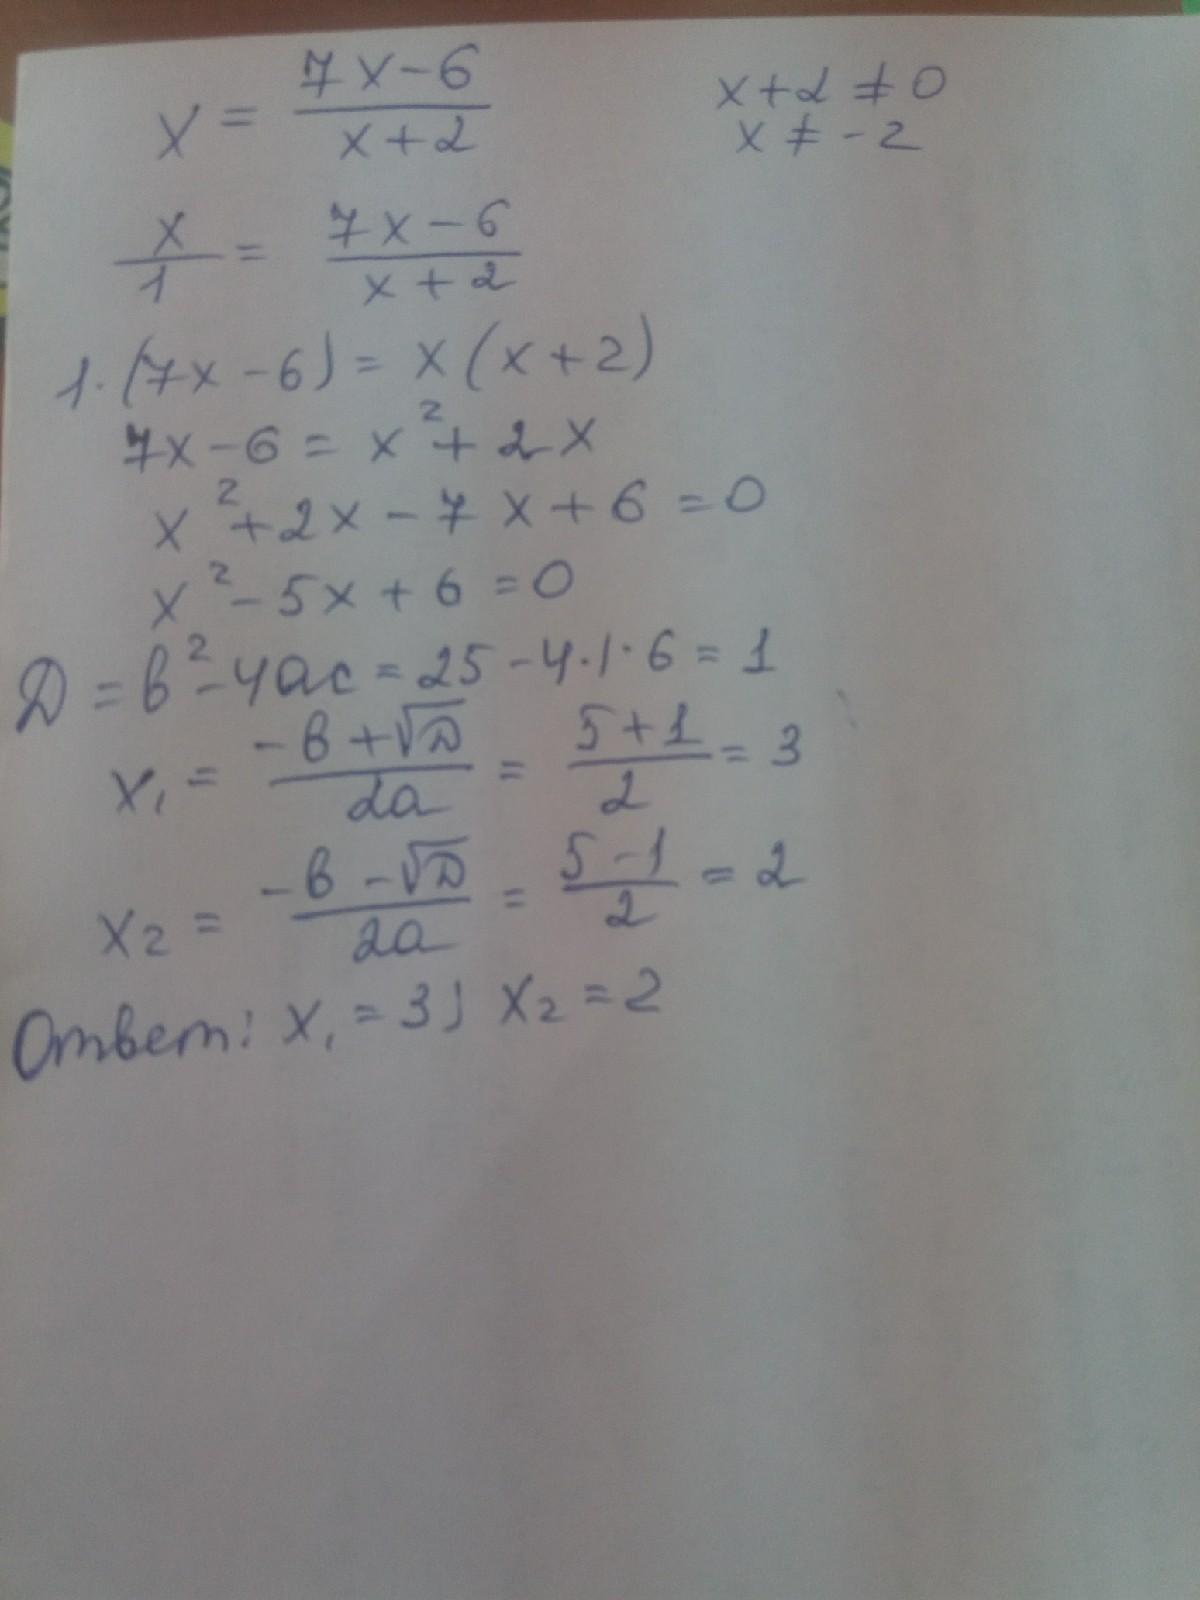 x = (7x-6)/(x+2)
x+2 ≠ 0
x ≠ -2
x/1 = (7x-6)/(x+2)
1·(7x-6) = x(x+2)
7x-6 = x²+2x
x²+2x-7x+6=0
x²-5x+6=0
Д = в²-4ac = 25-4·1·6 = 1
x₁ = (-в+√D)/2a = (5+1)/2 = 3
x₂ = (-в-√D)/2a = (5-1)/2 = 2
Ответ: x₁ = 3; x₂ = 2